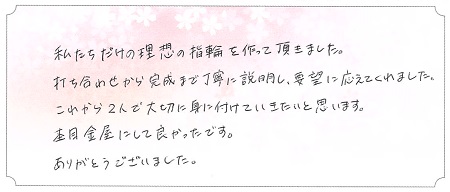 私たちだけの理想の指輪を作って頂きました。
打ち合わせから完成まで丁寧に説明し、要望に応えてくれました。
これから2人で大切に身に付けていきたいと思います。
杢目金屋にして良かったです。
ありがとうございました。